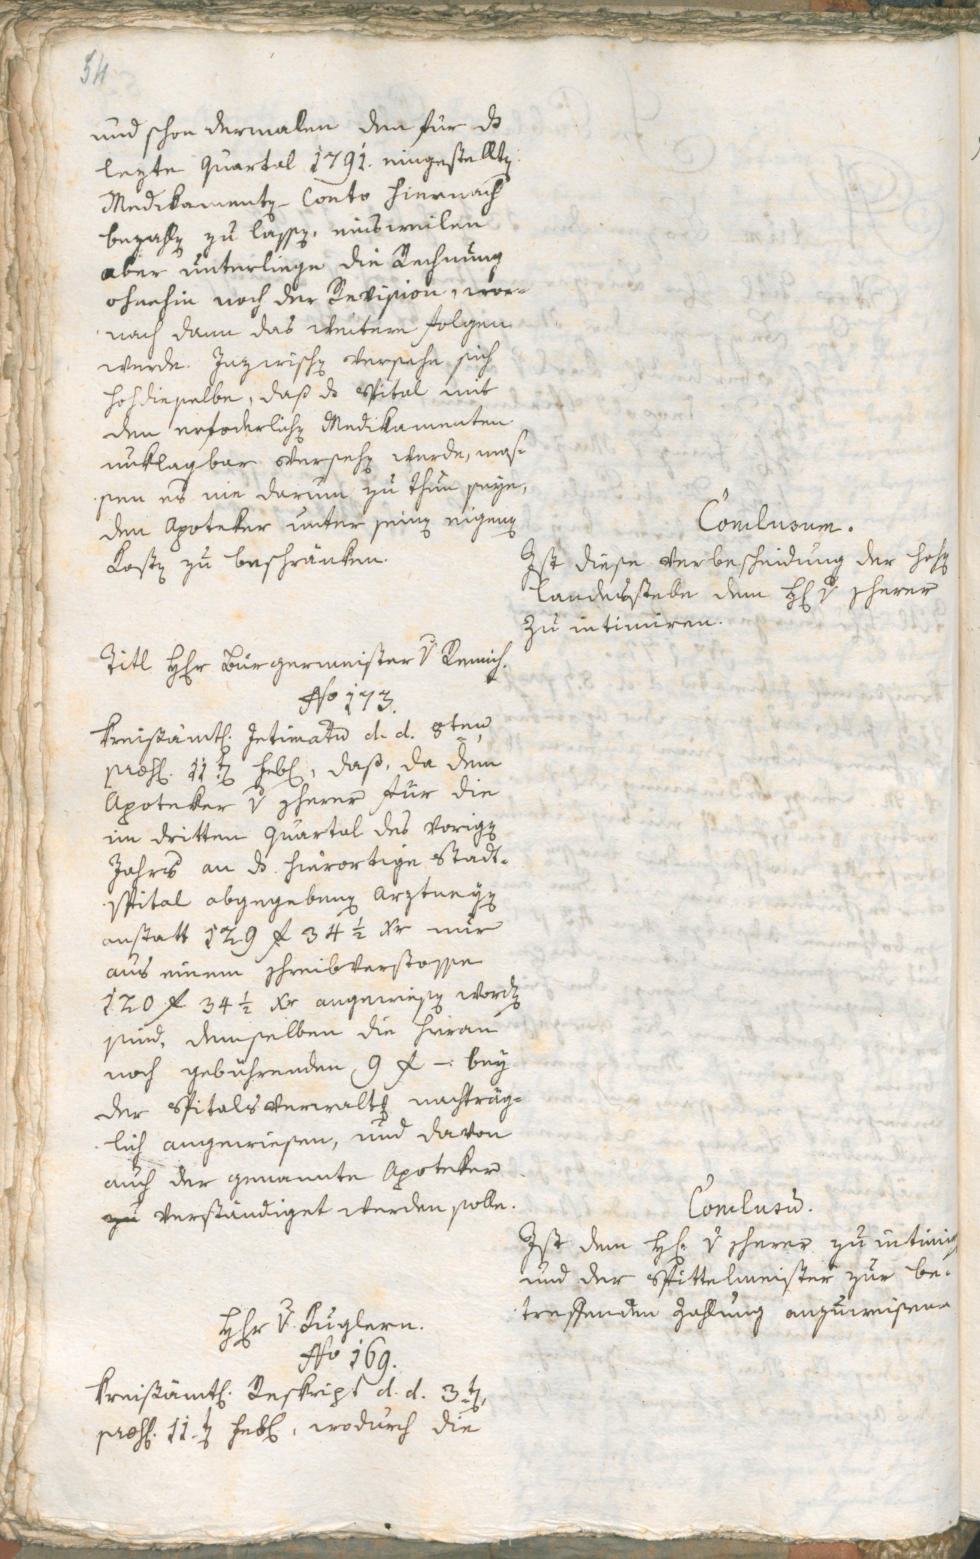 54
und schon dermalen den für ds
lezte Quartal 1791. eingestellten
Medikamenten-Conto hiernach
bezahlen zu lassen, einsweilen
aber unterliege die Rechnung
ohnehin noch der Revision, wor-
nach dann das weitere folgen
werde. Inzwischen versehe sich
hochdieselbe, daß ds Spital mit
den erfoderlichen Medikamenten
unklagbar versehen werde, mas-
sen es nie darum zu thun seye,
den Apoteker unter seine eigene
Kosten zu beschränken.
Conclusum.
Ist diese Verbescheidung der hohen
Landesstelle dem H. v Scherer
zu intimiren.
Titl. Hr Bürgermeister v Remich.
No 173.
Kreisämtl. Intimatum d. d. 8ten,
praes. 11ten Feb., daß, da dem
Apoteker v Scherer für die
im dritten Quartal des vorigen
Jahrs an ds hierortige Stadt-
spital abgegebenen Arztneyen
anstatt 129 f 34 ½ Xr nur
aus einem Schreibverstosse
120 f 34 ½ Xr angewiesen worden
sind, demselben die hieran
noch gebührenden 9 f – bey
der Spitalsverwaltg nachträg-
lich angewiesen, und davon
auch der genannte Apoteker
zu verständiget werden solle.
Conclusum.
Ist dem H. v Scherer zu intimiren
und der Spittelmeister zur be-
treffenden Zahlung anzuweisen.
Hr v. Kuglern.
No 169.
Kreisämtl. Reskript d. d. 3ten,
praes. 11ten Feb., wodurch die